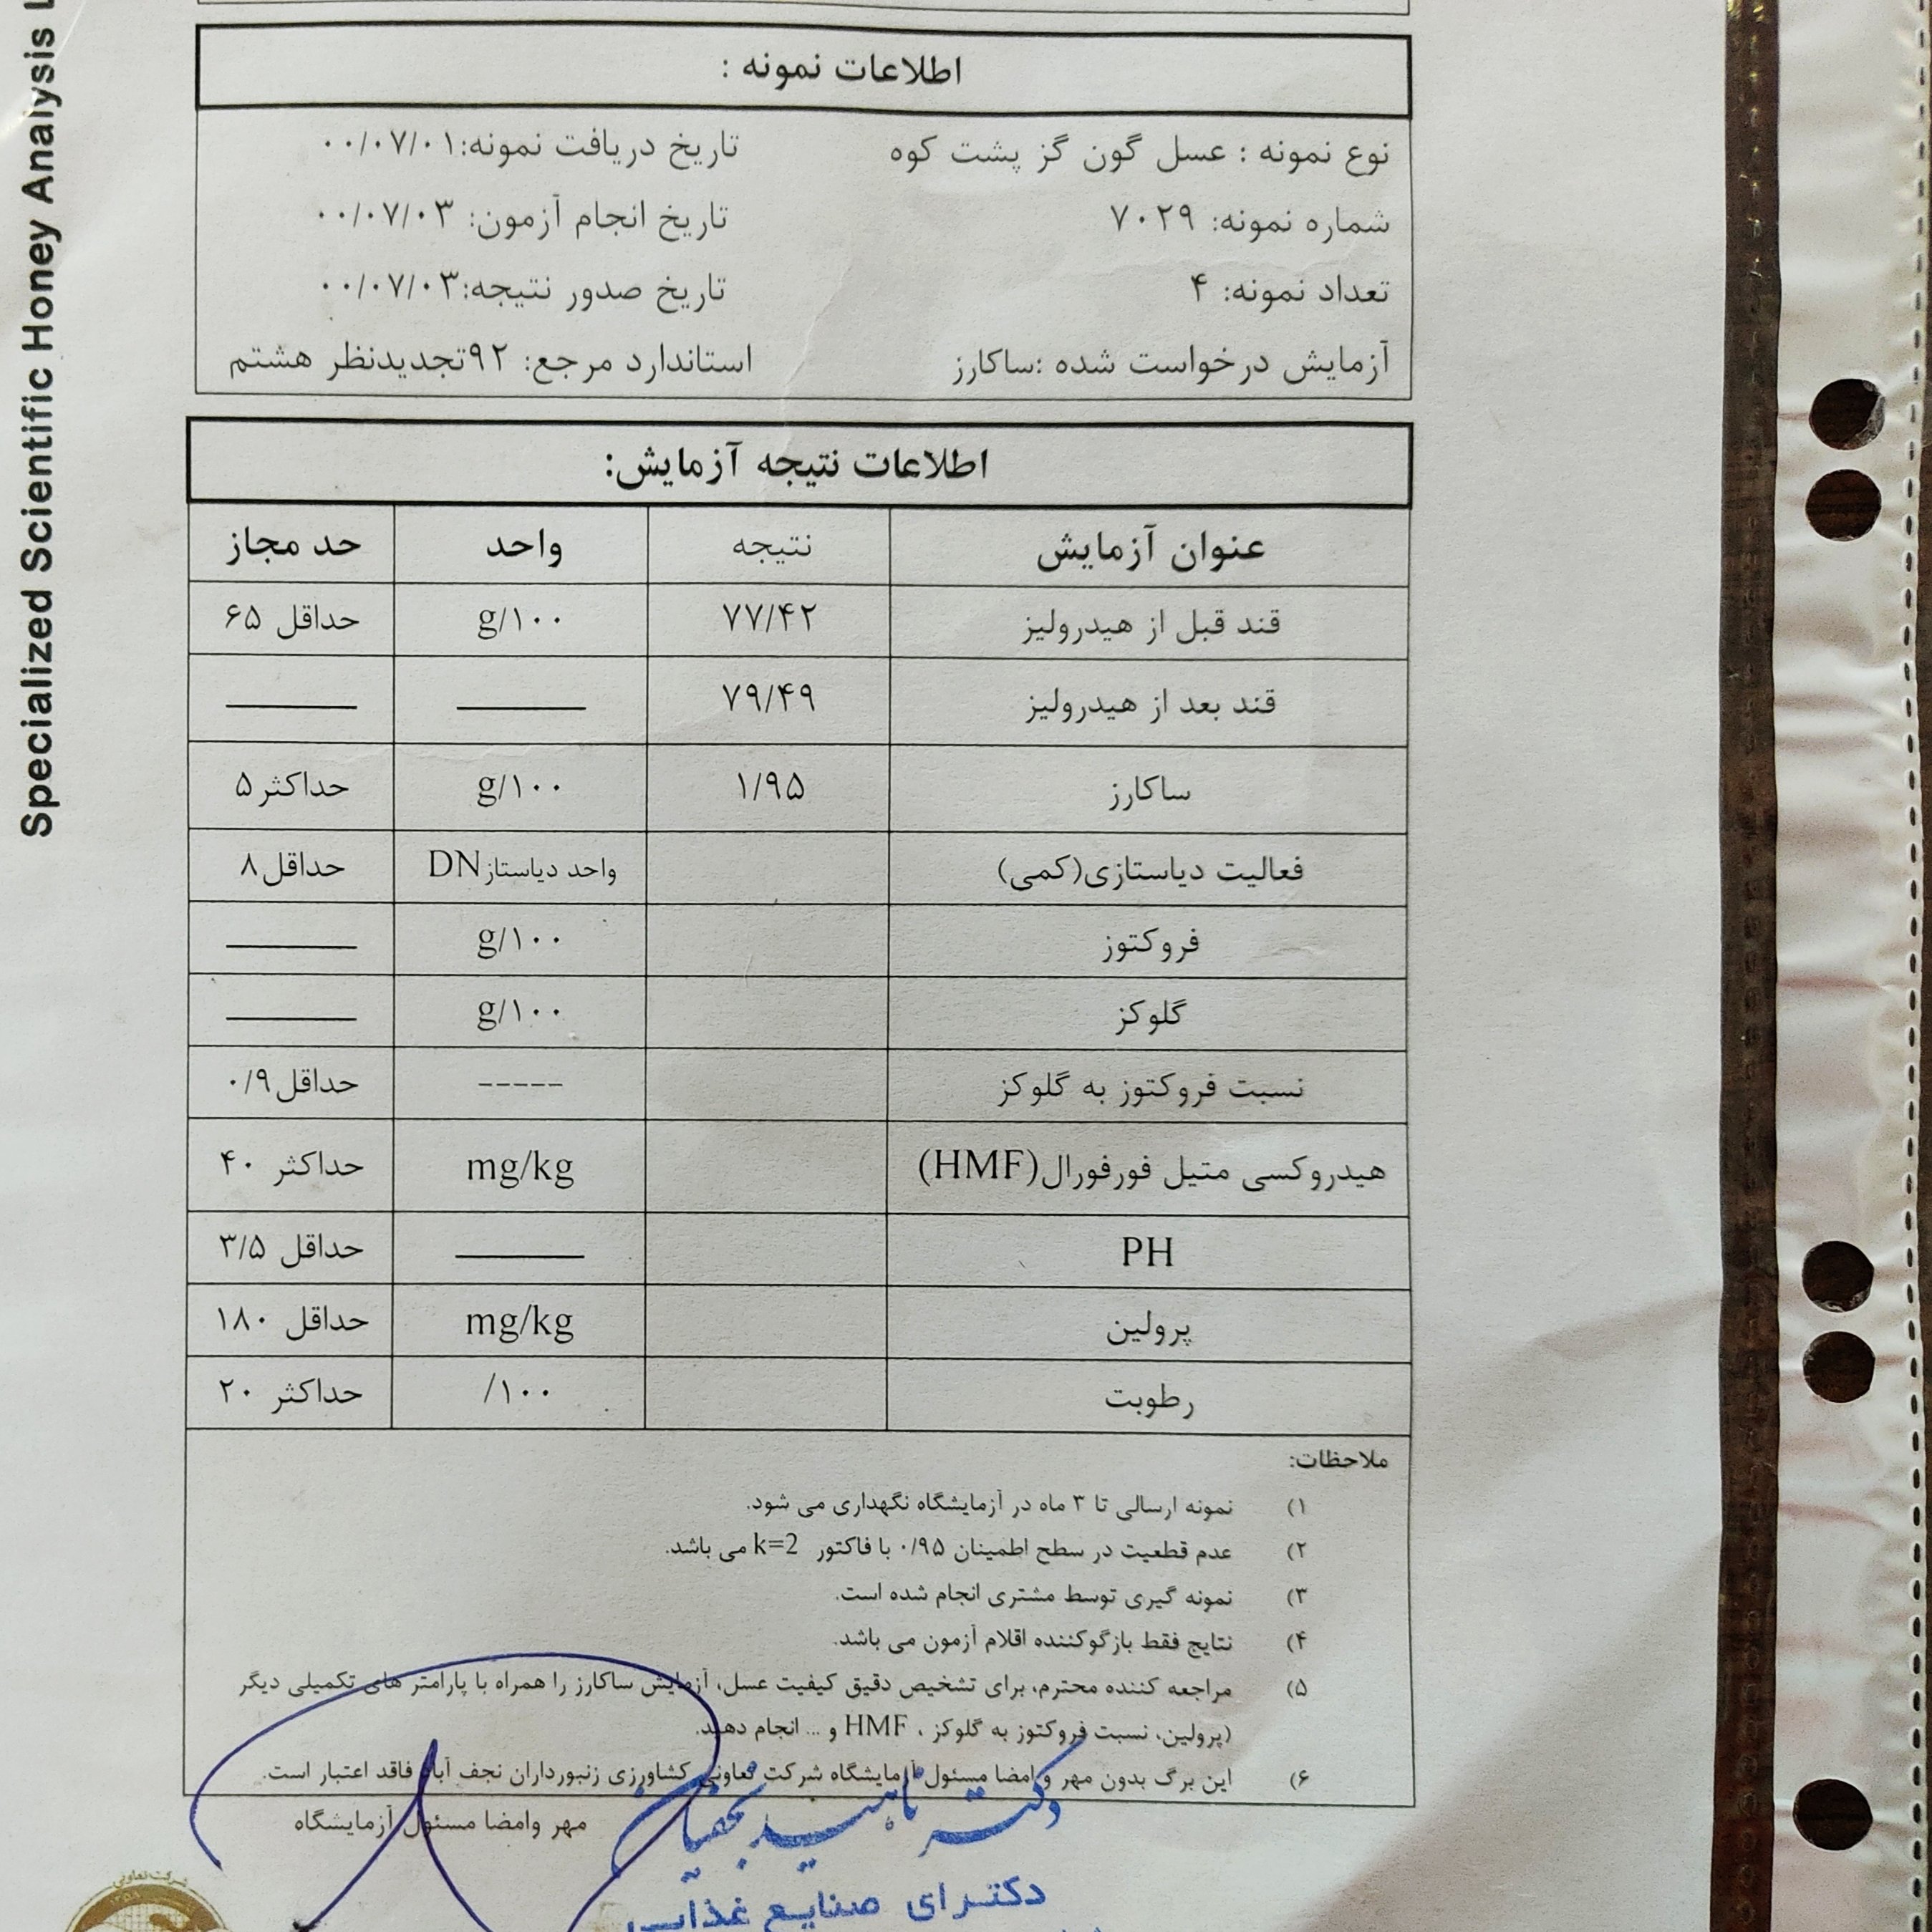 Specialized Scientific Honey Analysis
اطلاعات نمونه :
نوع نمونه : عسل گون گز پشت کوه تاریخ دریافت نمونه:۰۰/۰۷/۰۱
شماره نمونه: ۷۰۲۹ تاریخ انجام آزمون: ۰۰/۰۷/۰۳
تعداد نمونه: ۴ تاریخ صدور نتیجه:۰۰/۰۷/۰۳
آزمایش درخواست شده :ساکارز استاندارد مرجع: ۹۲تجدیدنظر هشتم
اطلاعات نتیجه آزمایش:
عنوان آزمایش نتیجه واحد حد مجاز
قند قبل از هیدرولیز ۷۷/۴۲ g/۱۰۰ حداقل ۶۵
قند بعد از هیدرولیز ۷۹/۴۹ ——— ———
ساکارز ۱/۹۵ g/۱۰۰ حداکثر ۵
فعالیت دیاستازی(کمی) واحد دیاستازDN حداقل۸
فروکتوز g/۱۰۰ ———
گلوکز g/۱۰۰ ———
نسبت فروکتوز به گلوکز ----- حداقل۰/۹
هیدروکسی متیل فورفورال(HMF) mg/kg حداکثر ۴۰
PH ——— حداقل ۳/۵
پرولین mg/kg حداقل ۱۸۰
رطوبت /۱۰۰ حداکثر ۲۰
ملاحظات:
۱) نمونه ارسالی تا ۳ ماه در آزمایشگاه نگهداری می شود.
۲) عدم قطعیت در سطح اطمینان ۰/۹۵ با فاکتور k=2 می باشد.
۳) نمونه گیری توسط مشتری انجام شده است.
۴) نتایج فقط بازگوکننده اقلام آزمون می باشد.
۵) مراجعه کننده محترم، برای تشخیص دقیق کیفیت عسل، آزمایش ساکارز را همراه با پارامتر های تکمیلی دیگر
(پرولین، نسبت فروکتوز به گلوکز ، HMF و ... انجام دهید.
۶) این برگ بدون مهر و امضا مسئول آزمایشگاه شرکت تعاونی کشاورزی زنبورداران نجف آباد فاقد اعتبار است.
مهر وامضا مسئول آزمایشگاه
دکتر ناهید
دکترای صنایع غذایی
شرکت تعاونی